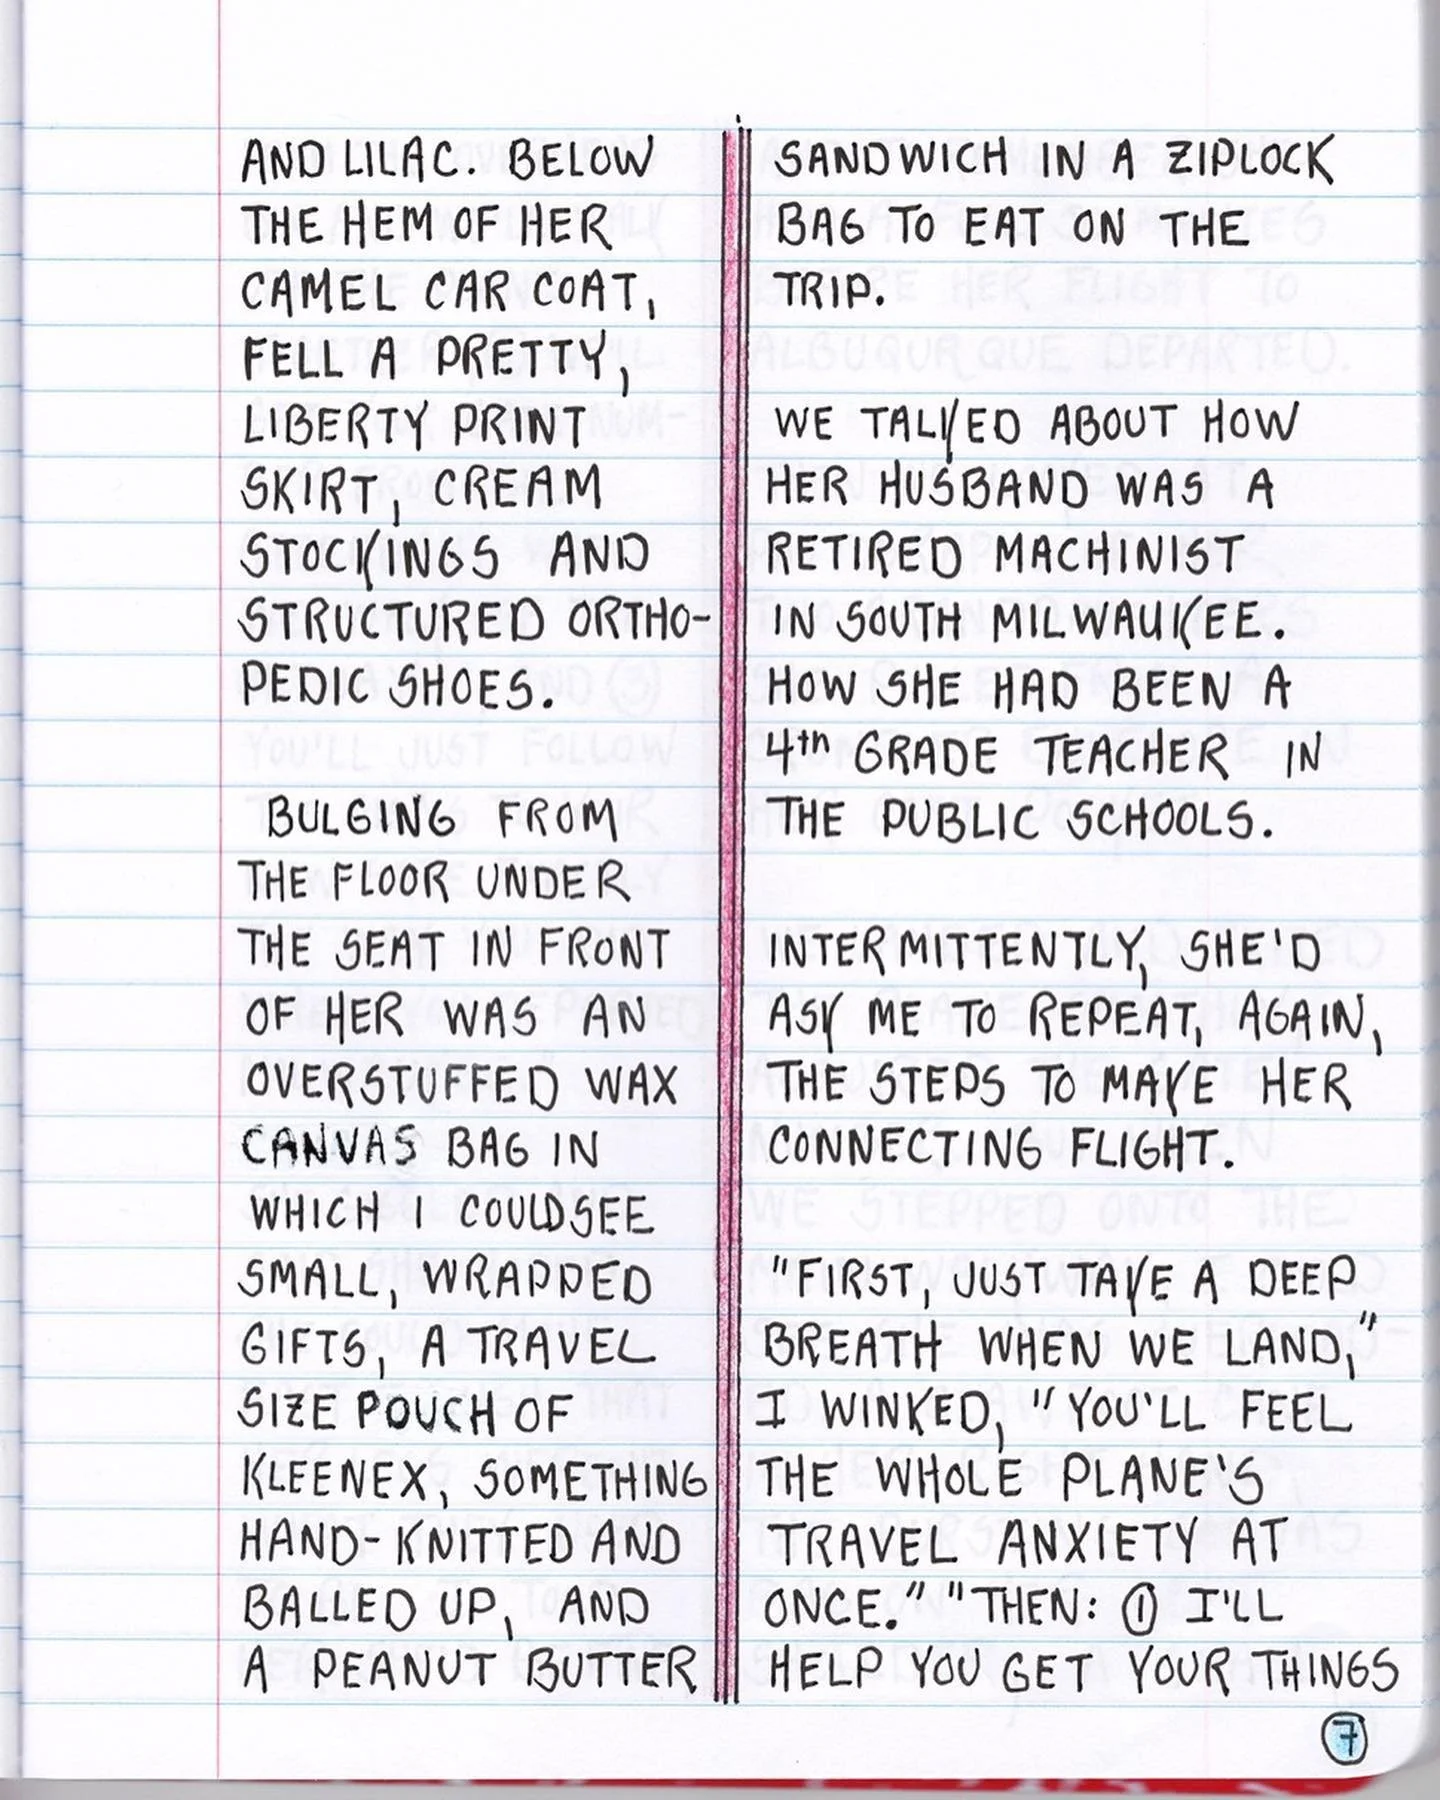 AND LILAC. BELOW
THE HEM OF HER
CAMEL CAR COAT,
FELL A PRETTY,
LIBERTY PRINT
SKIRT, CREAM
STOCKINGS AND
STRUCTURED ORTHO-
PEDIC SHOES.
BULGING FROM
THE FLOOR UNDER
THE SEAT IN FRONT
OF HER WAS AN
OVERSTUFFED WAX
CANVAS BAG IN
WHICH I COULD SEE
SMALL, WRAPPED
GIFTS, A TRAVEL
SIZE POUCH OF
KLEENEX, SOMETHING
HAND-KNITTED AND
BALLED UP, AND
A PEANUT BUTTER
SANDWICH IN A ZIPLOCK
BAG TO EAT ON THE
TRIP.
WE TALKED ABOUT HOW
HER HUSBAND WAS A
RETIRED MACHINIST
IN SOUTH MILWAUKEE.
HOW SHE HAD BEEN A
4th GRADE TEACHER IN
THE PUBLIC SCHOOLS.
INTERMITTENTLY, SHE'D
ASK ME TO REPEAT, AGAIN,
THE STEPS TO MAKE HER
CONNECTING FLIGHT.
"FIRST, JUST TAKE A DEEP
BREATH WHEN WE LAND,"
I WINKED, "YOU'LL FEEL
THE WHOLE PLANE'S
TRAVEL ANXIETY AT
ONCE." "THEN: ① I'LL
HELP YOU GET YOUR THINGS
7